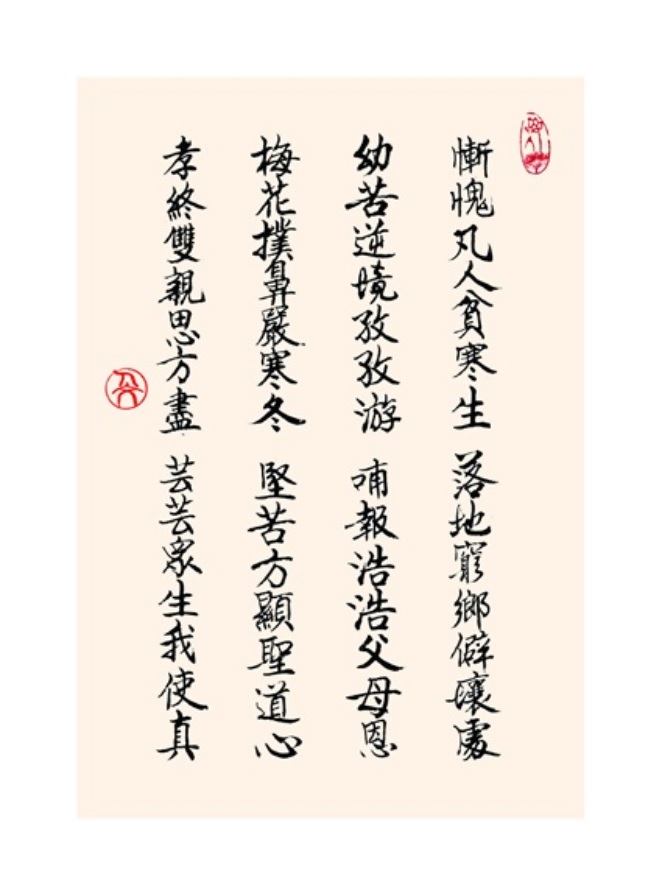 慚愧凡人貧寒生 落地窮鄉僻壤處
幼苦逆境孜孜游 哺報浩浩父母恩
梅花撲鼻嚴寒冬 堅苦方顯聖道心
孝終雙親思方盡 芸芸眾生我使真